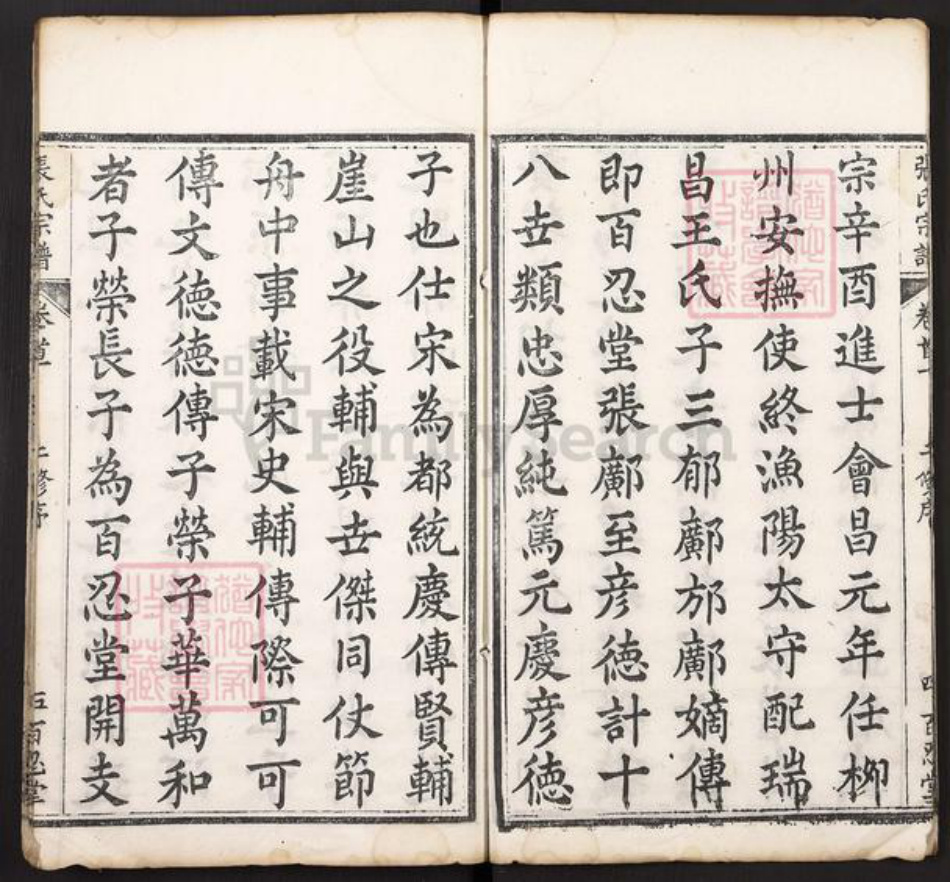 張氏宗譜 卷首一 二修序 四 百忍堂
宗辛酉進士會昌元年任栁
州安撫使終漁陽太守配瑞
昌王氏子三郁鄺邡鄺嫡傳
即百忍堂張鄺至彦徳計十
八世類忠厚純篤元慶彦徳
子也仕宋為都統慶傳賢輔
崖山之役輔與世傑同仗節
舟中事載宋史輔傳際可可
傳文徳徳傳子榮子華萬和
者子榮長子為百忍堂開支
張氏宗譜 卷首一 二修序 五 百忍堂
FamilySearch